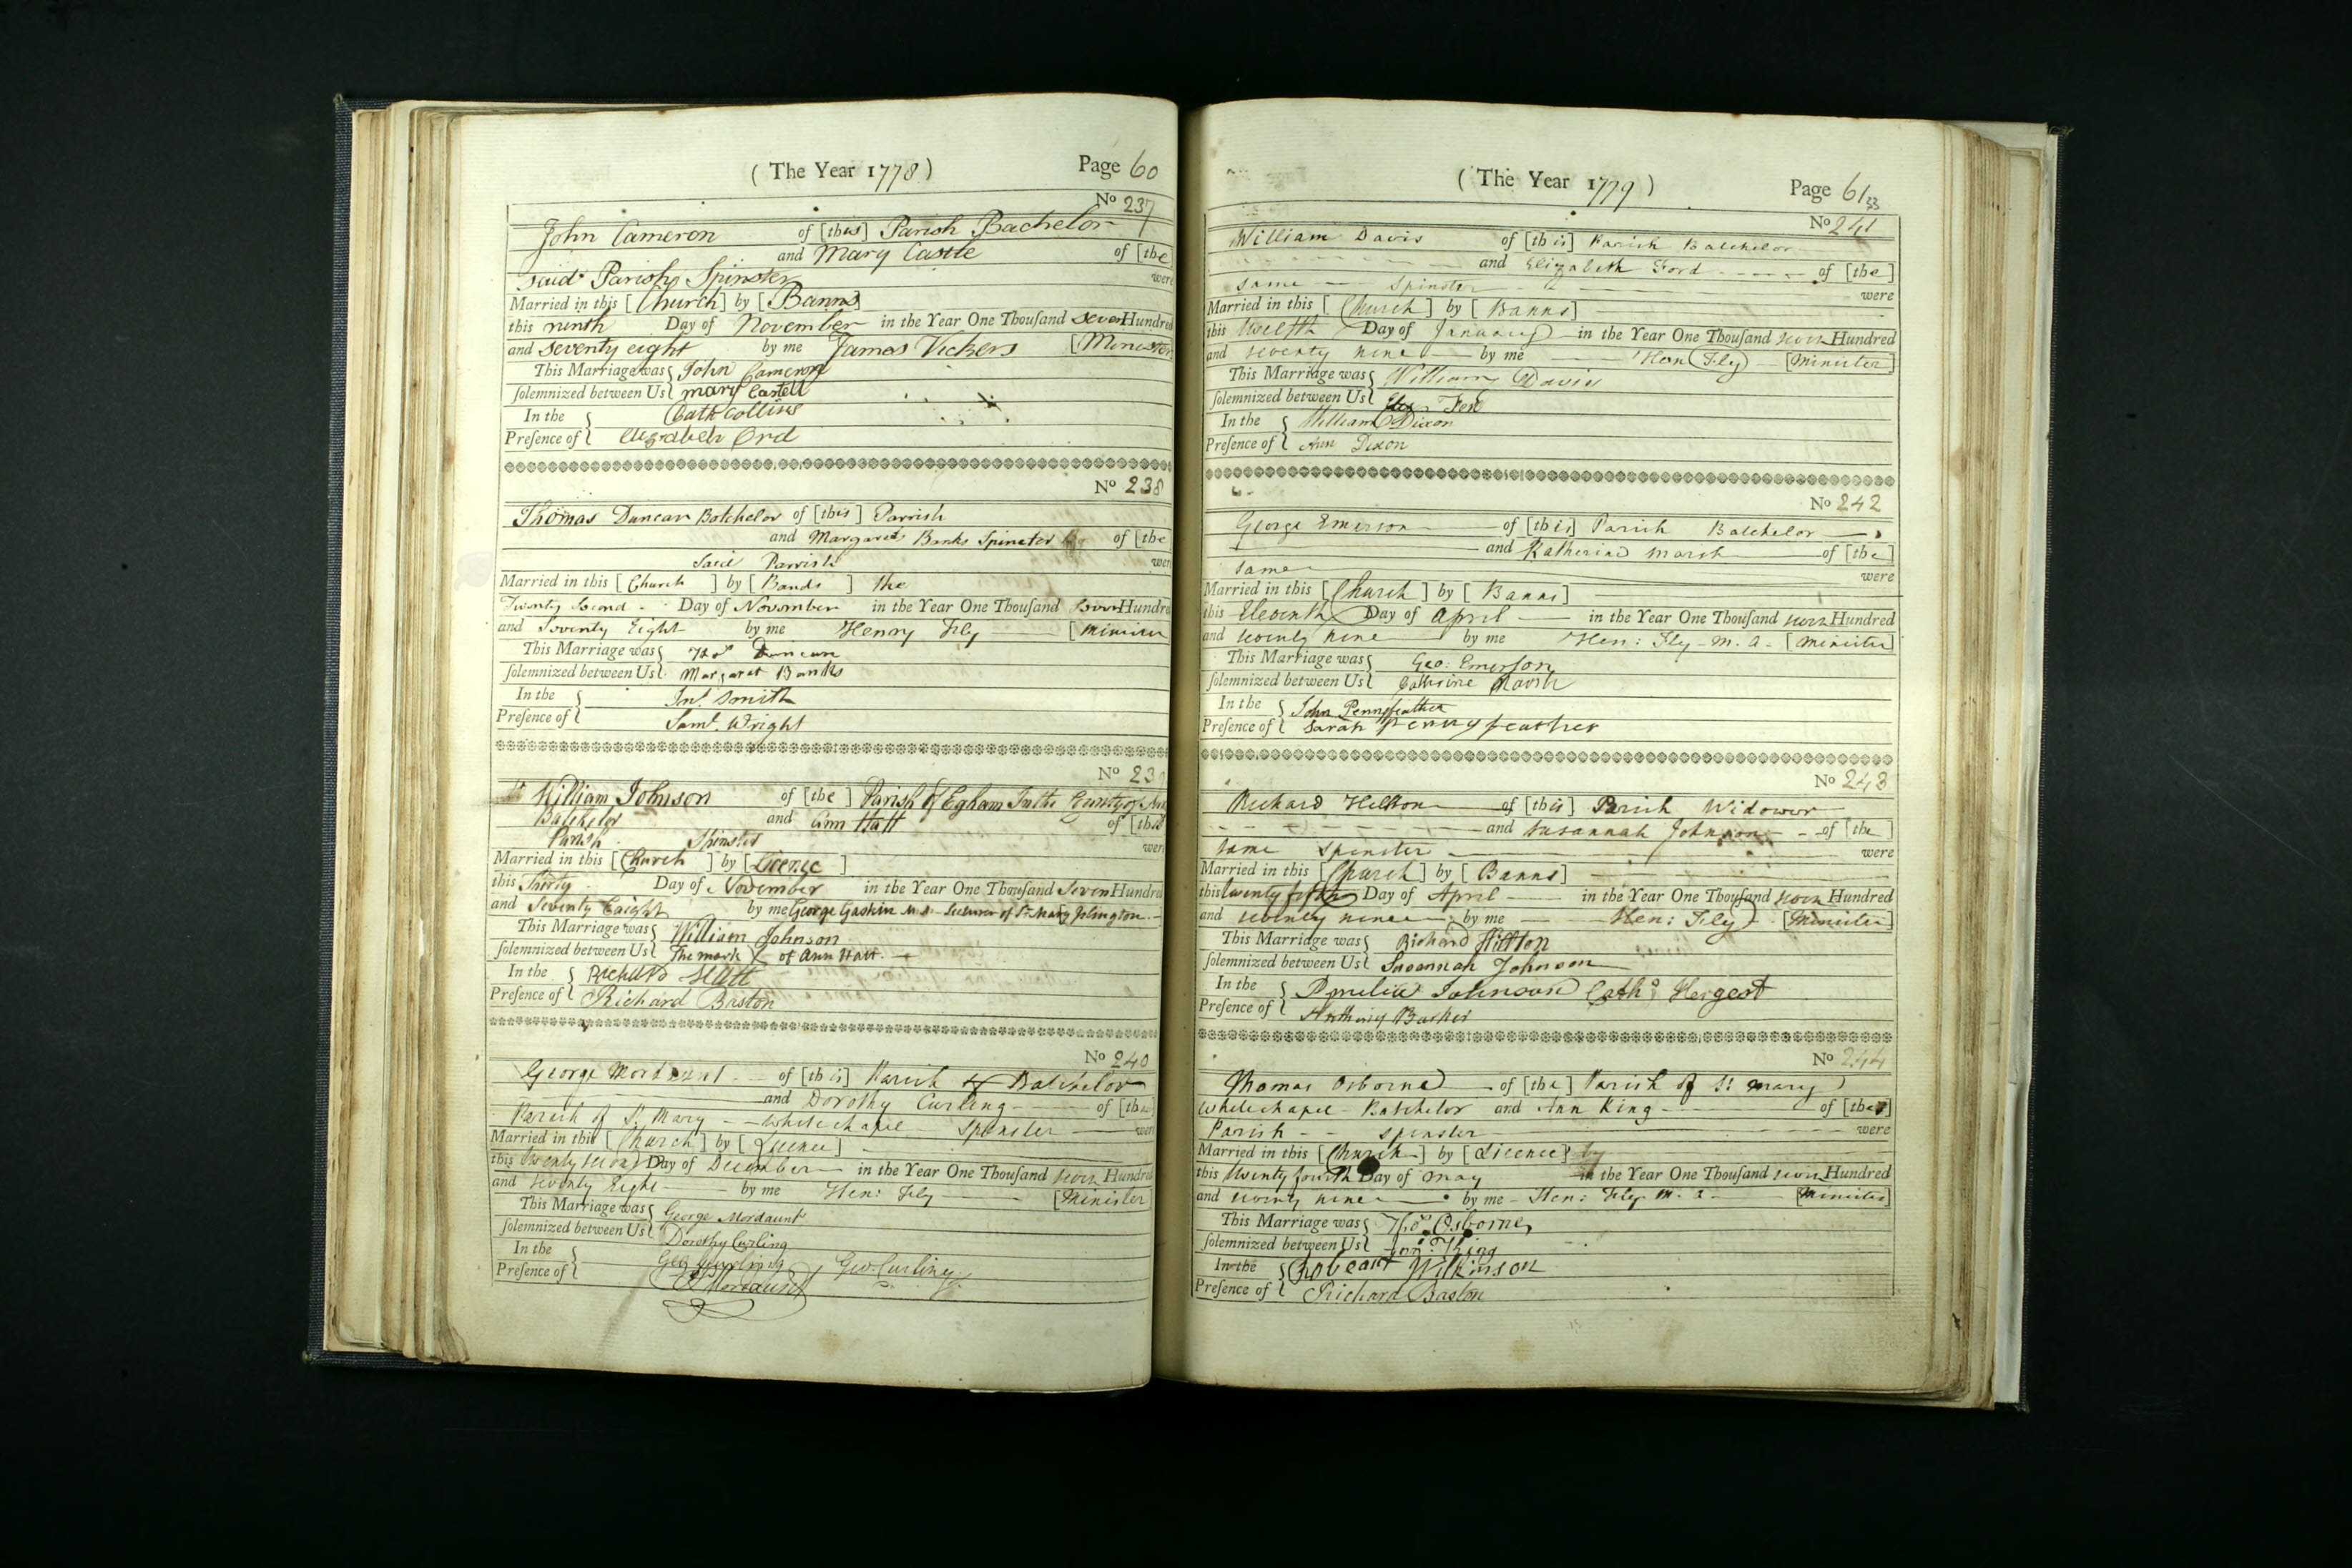 ( The Year 1778 ) Page 60
No 237
John Cameron of [this] Parish Bachelor
and Mary Castle of [the
said Parish Spinster were
Married in this [Church] by [Banns]
this ninth Day of November in the Year One Thouſand Seven Hundred
and Seventy eight by me James Vickers [Minister
This Marriage was John Cameron
ſolemnized between Us mary Castell
In the Cath Collins
Preſence of Elizabeth Ord
No 238
Thomas Duncan Batchelor of [this] Parrish
and Margaret Banks Spinster of [the
Said Parrish were
Married in this [Church] by [Bands] the
Twenty Second Day of November in the Year One Thouſand Seven Hundre
and Seventy Eight by me Henry Fly [Minister
This Marriage was Thos Duncan
ſolemnized between Us Margaret Banks
In the Jno. Smith
Preſence of Saml. Wright
No 23
William Johnson of [the] Parish of Egham In the County of
Batchelor and Ann Hatt of [this
Parish Spinster were
Married in this [Church] by [Licence]
this Thirty Day of November in the Year One Thouſand Seven Hundred
and Seventy Eaight by me George Gaskin M.A. Lecturer of St. Mary Islington
This Marriage was William Johnson
ſolemnized between Us The mark X of Ann Hatt
In the Richard Hatt
Preſence of Richard Baston
No 240
George Mordaunt of [this] Parish Batchelor
and Dorothy Curling of [the
Parish of St. Mary Whitechapel Spinster were
Married in this [Church] by [Licence]
this twenty second Day of December in the Year One Thouſand seven Hundred
and seventy Eight by me Hen: Fly [Minister]
This Marriage was George Mordaunt
ſolemnized between Us Dorothy Curling
In the Geo Curling Geo. Curling
Preſence of Mordaunt
( The Year 1779 ) Page 61 33
No 241
William Davis of [this] Parish Batchelor
and Elizabeth Ford of [the]
same Spinster were
Married in this [Church] by [Banns]
this twelfth Day of January in the Year One Thouſand seven Hundred
and seventy nine by me Hen Fly [Minister]
This Marriage was William Davis
ſolemnized between Us
In the William Dixon
Preſence of Ann Dixon
No 242
George Emerson of [this] Parish Batchelor
and Katherine Marsh of [the]
same were
Married in this [Church] by [Banns]
this Eleventh Day of April in the Year One Thouſand seven Hundred
and seventy nine by me Hen: Fly M.A. [Minister]
This Marriage was Geo: Emerson
ſolemnized between Us Catherine Marsh
In the John Pennyfeather
Preſence of Sarah Pennyfeather
No 243
Richard Hilton of [this] Parish Widower
and Susannah Johnson of [the]
same Spinster were
Married in this [Church] by [Banns]
this twenty fifth Day of April in the Year One Thouſand seven Hundred
and seventy nine by me Hen: Fly [Minister]
This Marriage was Richard Hilton
ſolemnized between Us Susannah Johnson
In the Pmelia Johnson Cathe Hergest
Preſence of Anthony Barker
No 244
Thomas Osborne of [the] Parish of St mary
Whitechapel Batchelor and Ann King of [the]
Parish spinster were
Married in this [Church] by [Licence] by
this twenty fourth Day of May in the Year One Thouſand seven Hundred
and seventy nine by me Hen: Fly M.A. [Minister]
This Marriage was Thos Osborne
ſolemnized between Us Ann King
In the Robeart Wilkinson
Preſence of Richard Baston